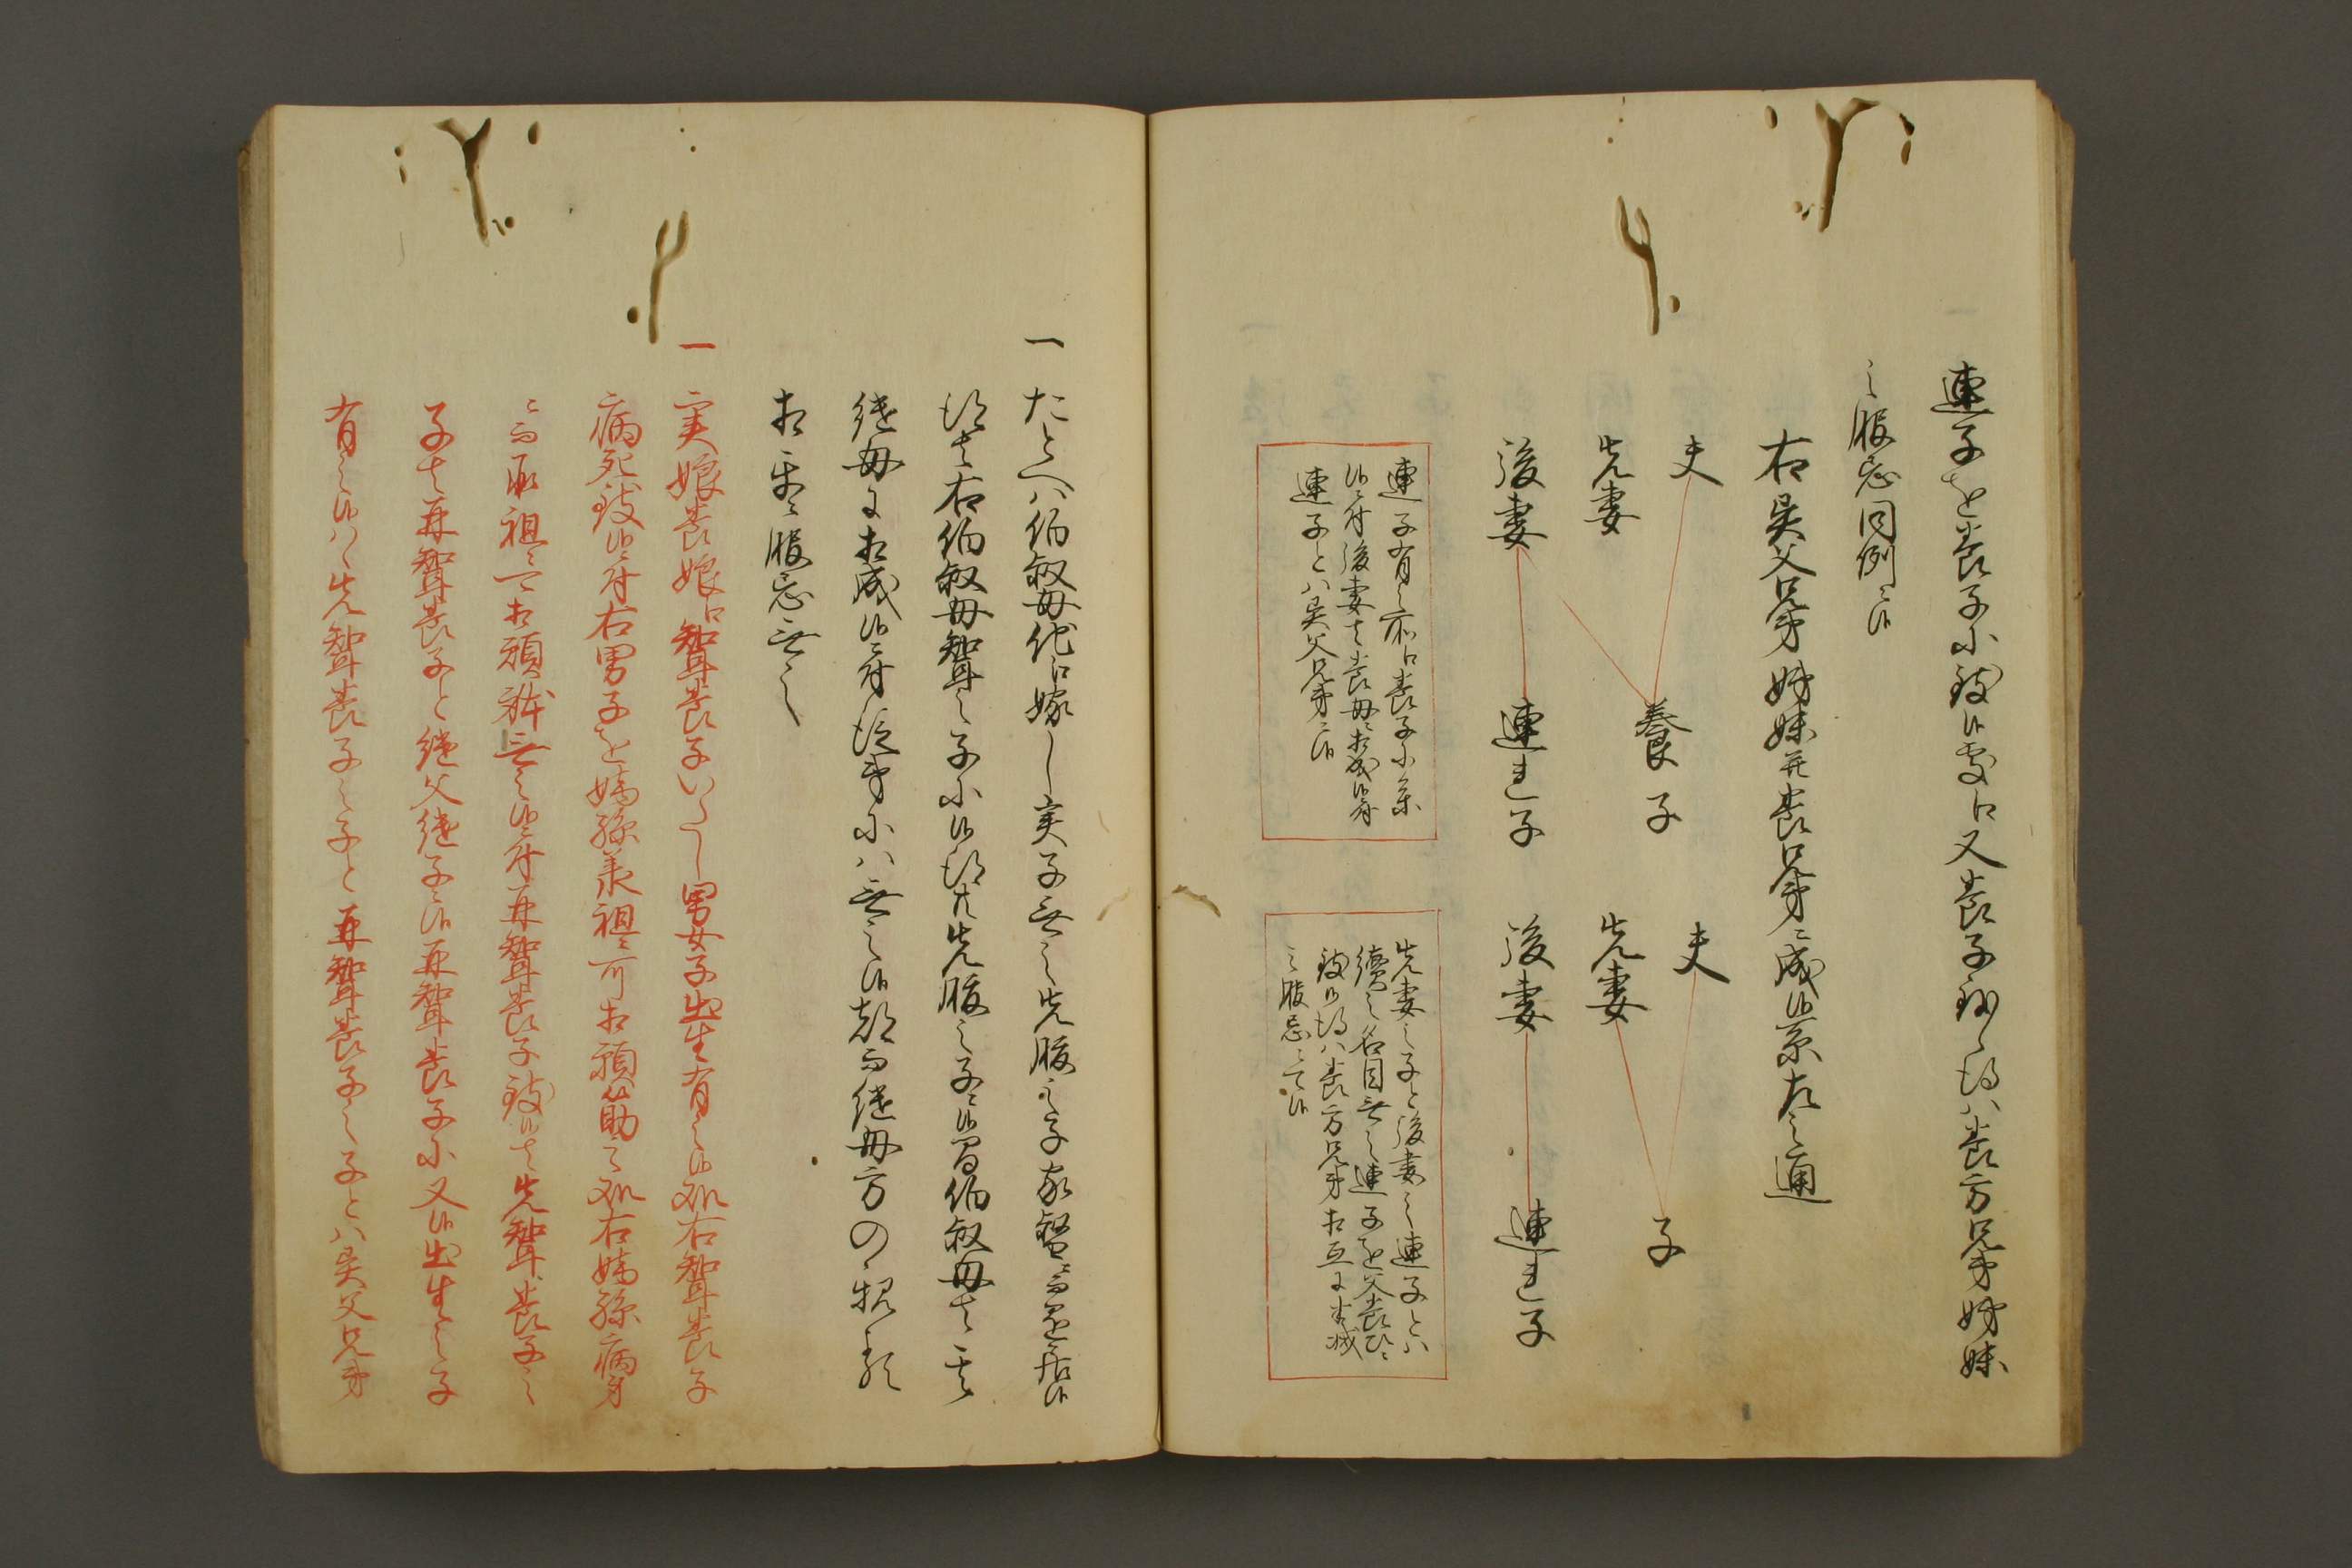 連子を養子ニ致候処江又養子致候得ハ養方兄弟姉妹
之服忌同例ニ候
右異父兄弟姉妹并養兄弟ニ成候
左之通
夫
先妻
後妻
養子
連子
連子有之所江養子
候ニ付後妻者養母ニ相成候付
連子とハ異父兄弟ニ候
夫
先妻
後妻
子
連子
先妻之子と後妻之連子とハ
続之名目無之連子を父養ひニ
致候得ハ養方兄弟相互ニ半減
之服忌ニ而候
一 たとへハ伯叔母他江嫁し実子無之先腹之子家督ニ而罷在候
得者右伯叔母聟之子ニ候得共先腹之子ニ候間伯叔母者
継母ニ相成候ニ付従弟ニハ無之候都而継母方の親類
相互ニ服忌無之
一 実娘養娘江聟養子いたし男女子出生有之候処右聟養子
病死致候ニ付右男子を嫡孫承祖ニ可相願筋之処右嫡孫病身
ニ而承祖ニ可相願躰無之候ニ付再聟養子致候者先聟養子之
子者再聟養子と継父継子ニ候再聟養子ニ又候出生之子
有之候ハヽ先聟養子之子と再聟養子之子とハ異父兄弟